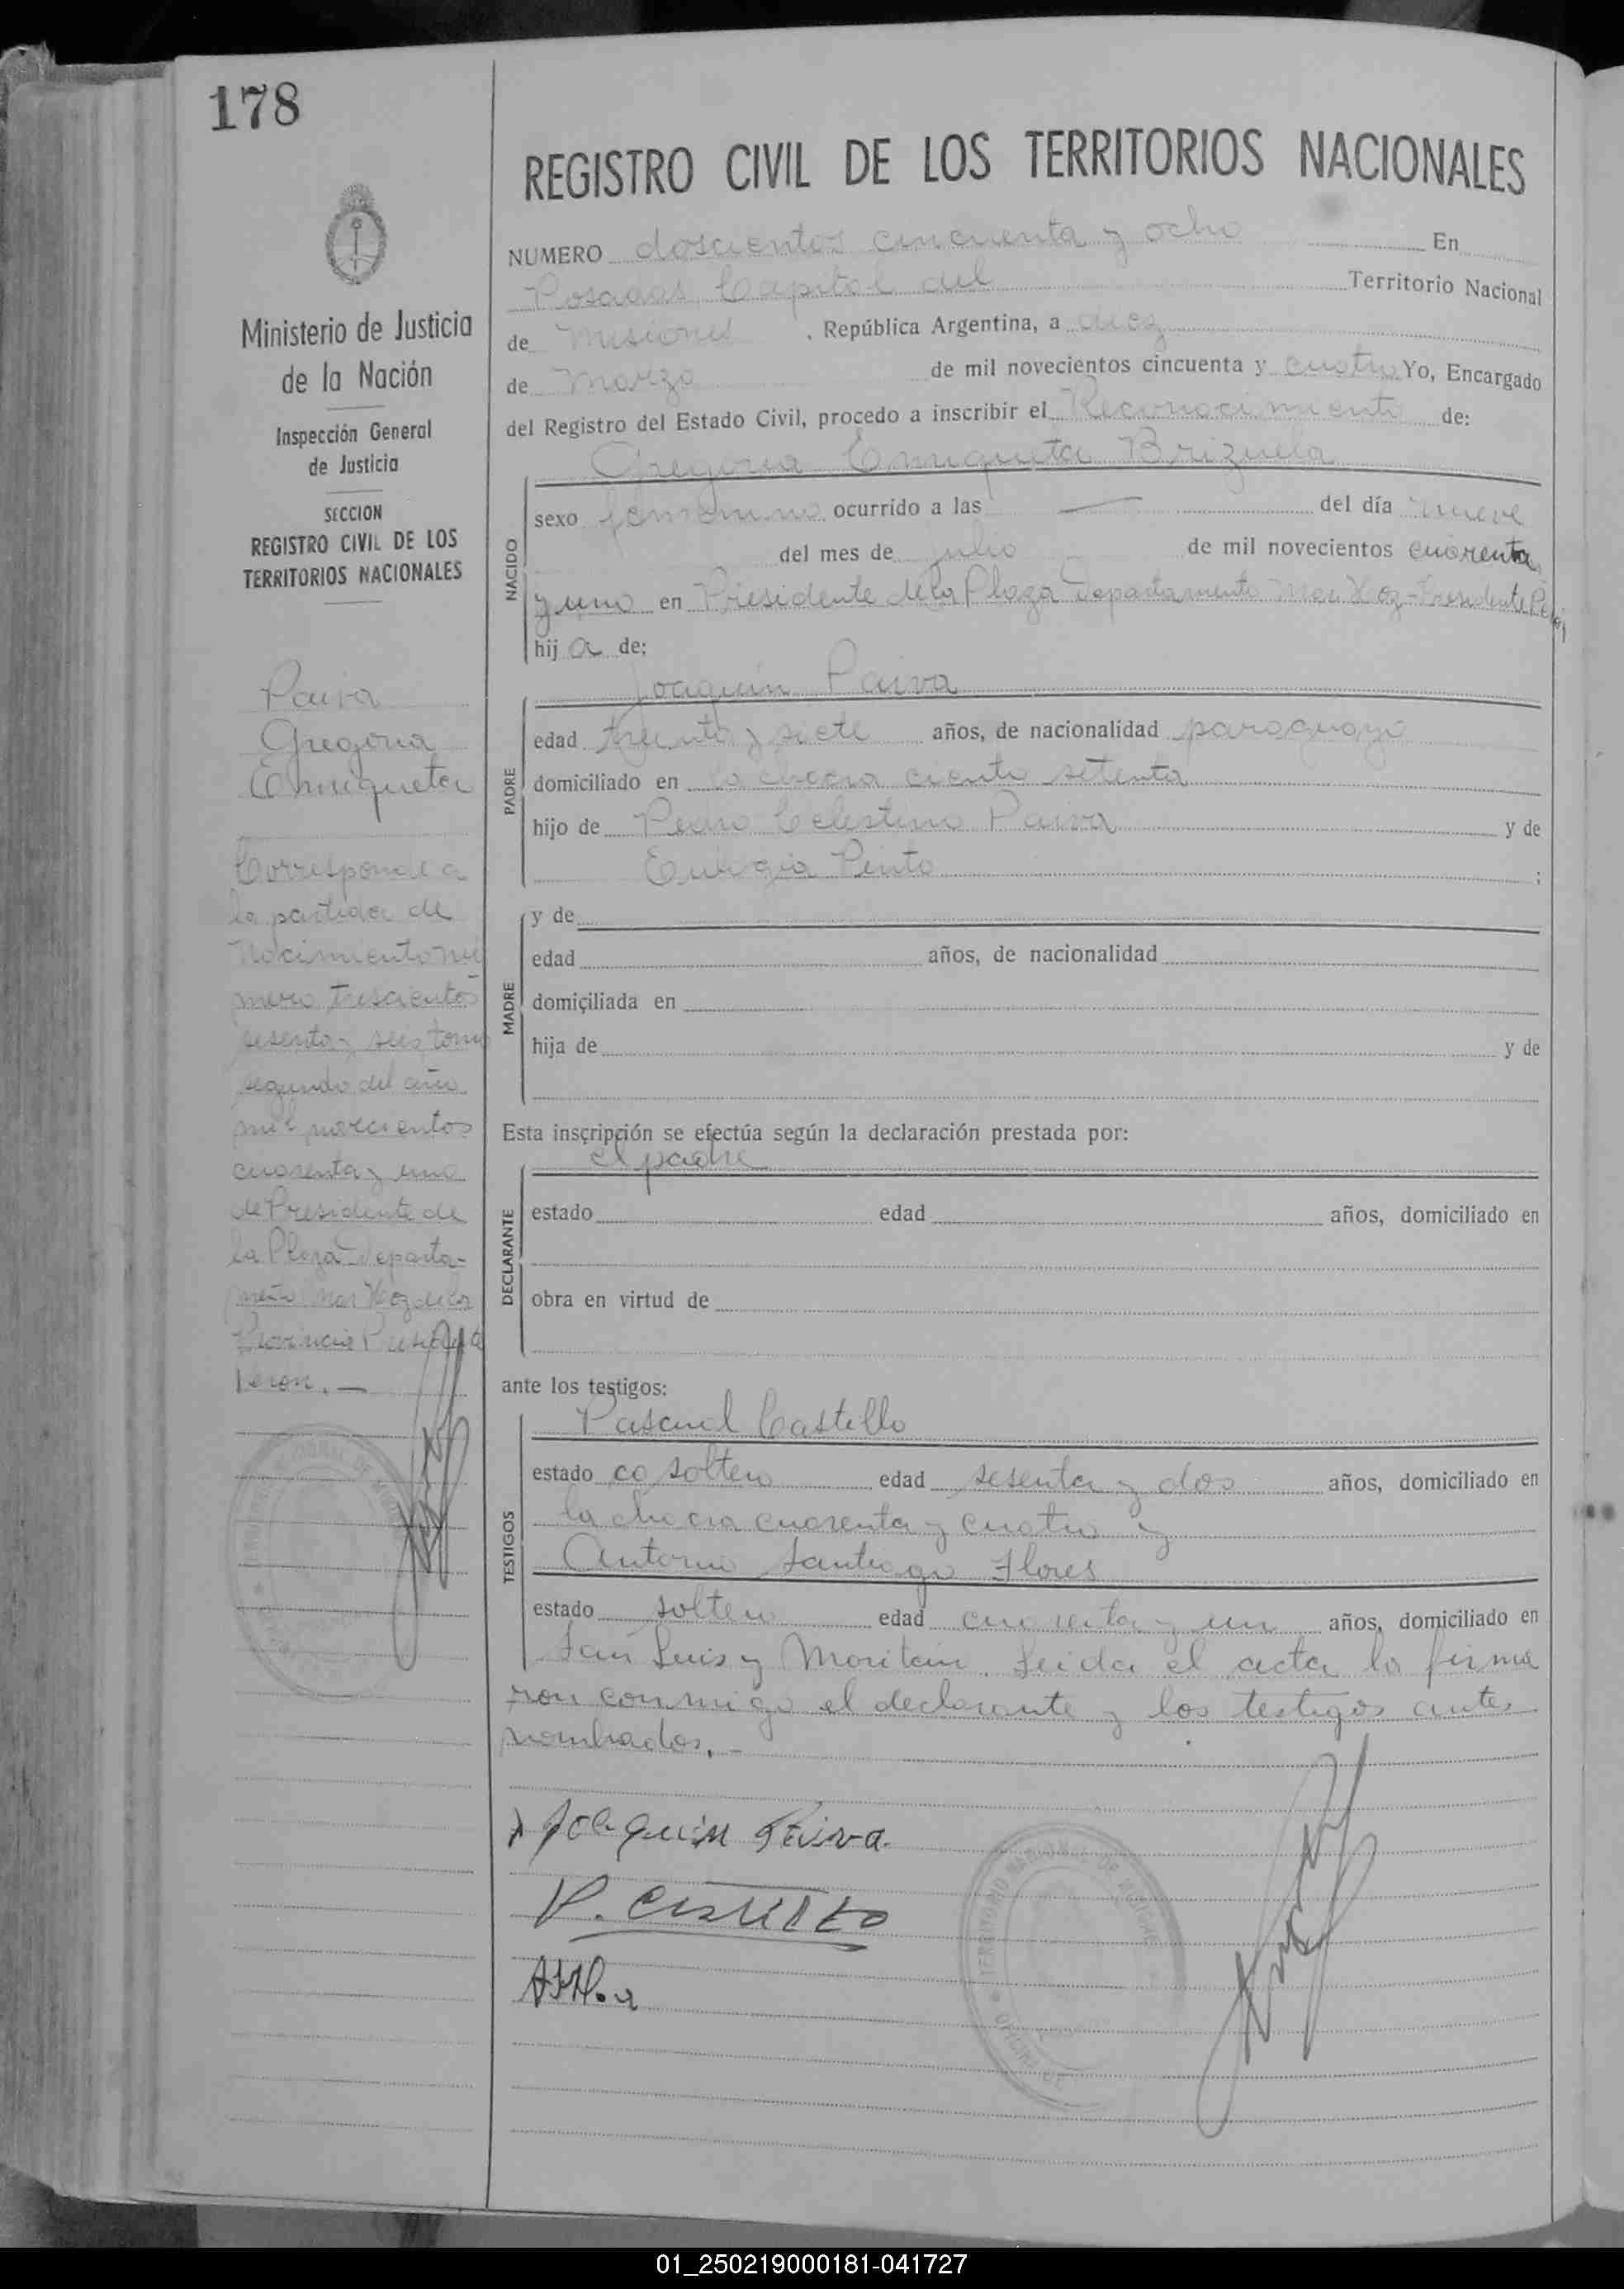 178
REGISTRO CIVIL DE LOS TERRITORIOS NACIONALES
Ministerio de Justicia
de la Nación
Inspección General
de Justicia
SECCION
REGISTRO CIVIL DE LOS
TERRITORIOS NACIONALES
Paiva
Gregoria
Enriqueta
Corresponde a
la partida de
Nacimiento nu
mero trescientos
sesenta y seis tomo
segundo del año
mil novecientos
cuarenta y uno
de Presidente de
la Plaza Departa-
mento de la
Provincia Presidente
Peron. —
NUMERO doscientos cincuenta y ocho En
Posadas Capital del Territorio Nacional
de Misiones , República Argentina, a diez
de Marzo de mil novecientos cincuenta y cuatro Yo, Encargado
del Registro del Estado Civil, procedo a inscribir el Reconocimiento de:
Gregoria Enriqueta Brizuela
NACIDO
sexo femenino ocurrido a las — del día nueve
del mes de Julio de mil novecientos cuarenta
y uno en Presidente de la Plaza Departamento - Presidente Perón
hij a de:
Joaquin Paiva
PADRE
edad treinta y siete años, de nacionalidad paraguayo
domiciliado en la chacra ciento setenta
hijo de Pedro Celestino Paiva y de
Eulogia Pinto ;
MADRE
y de
edad años, de nacionalidad
domiciliada en
hija de y de
Esta inscripción se efectúa según la declaración prestada por:
el padre
DECLARANTE
estado edad años, domiciliado en
obra en virtud de
ante los testigos:
Pascual Castillo
TESTIGOS
estado co soltero edad sesenta y dos años, domiciliado en
la chacra cuarenta y cuatro y
Antonio Santiago Flores
estado soltero edad cuarenta y un años, domiciliado en
San Luis y Moritan. Leida el acta la firma
ron conmigo el declarante y los testigos antes
nombrados. -
Joaquin Paiva
P. Castillo
TERRITORIO NACIONAL DE MISIONES
01_250219000181-041727